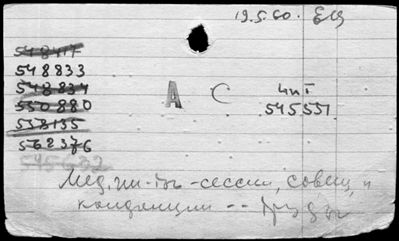 19.5.60. ЕЦ
548417
548833
548834
550880
553135
562376
545632
А С
чит
545551
Мед. ин-ты -сессии, совещ. и
конференции -- Труды